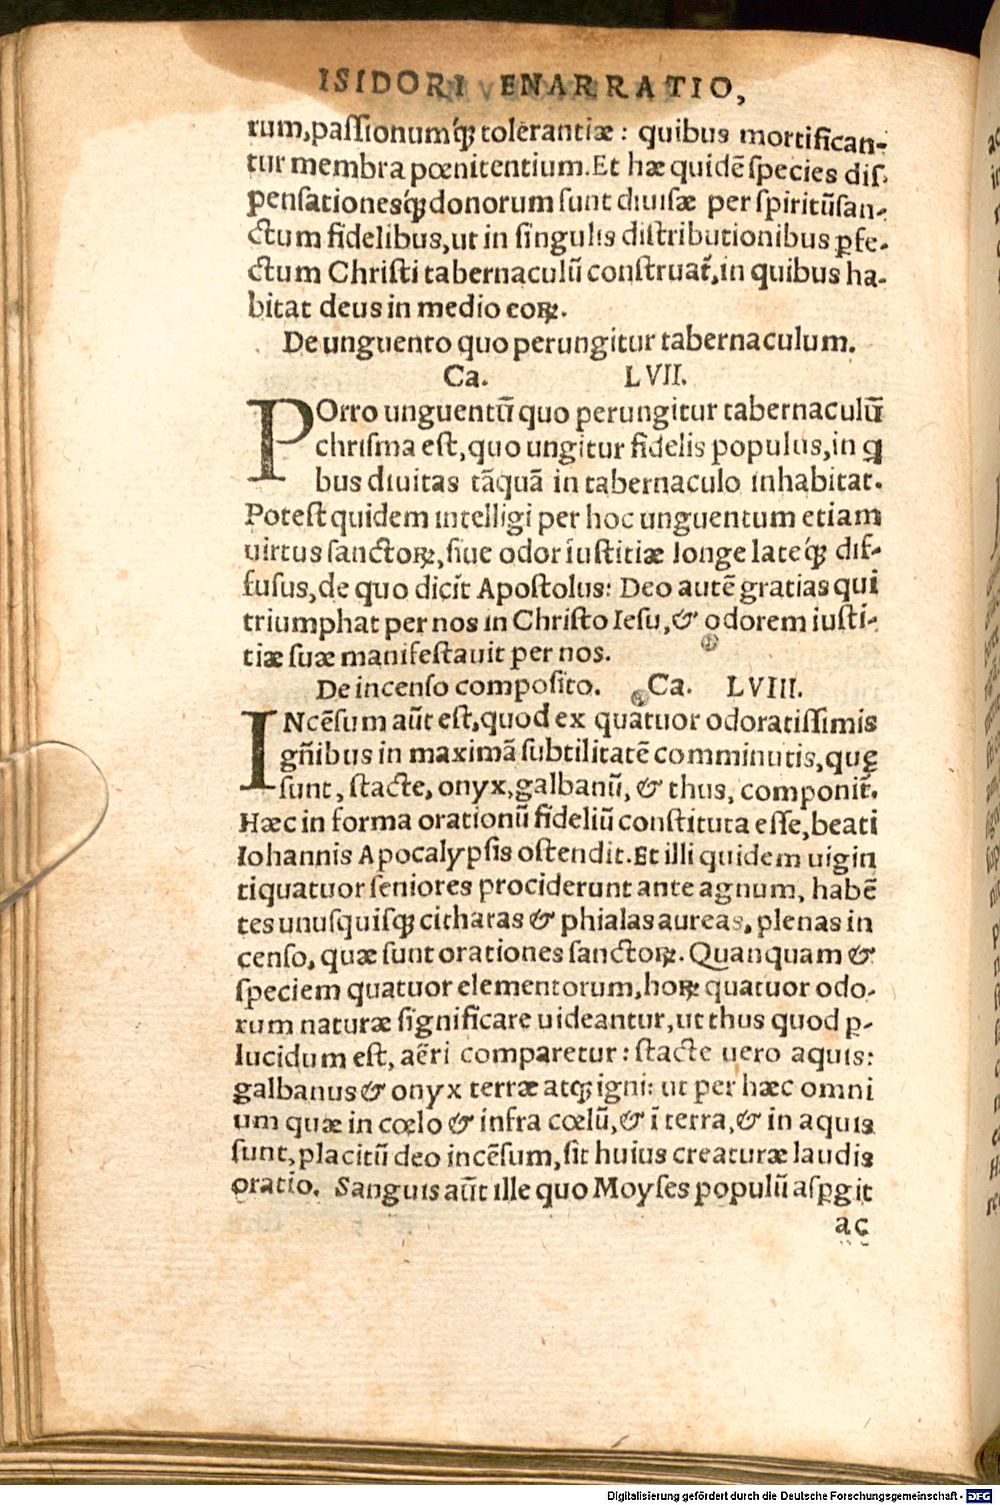 ISIDORI ENARRATIO,
rum,paſſionumq́ꝫ tolerantiæ : quibus mortifican-
tur membra pœnitentium.Et hæ quidē ſpecies diſ-
penſationesq́ꝫ donorum ſunt diuiſæ per ſpiritūſan-
ctum fidelibus,ut in ſingulis diſtributionibus ꝑfe-
ctum Chriſti tabernaculū conſtruat̃,in quibus ha-
bitat deus in medio eoꝝ.
De unguento quo perungitur tabernaculum.
Ca. LVII.
POrro unguentū quo perungitur tabernaculū
chriſma eſt,quo ungitur fidelis populus,in ꝗ
bus diuitas tāquā in tabernaculo inhabitat.
Poteſt quidem intelligi per hoc unguentum etiam
uirtus ſanctoꝝ,ſiue odor iuſtitiæ longe lateq́ꝫ dif-
fuſus,de quo dicit Apoſtolus: Deo autē gratias qui
triumphat per nos in Chriſto Ieſu,& odorem iuſti-
tiæ ſuæ manifeſtauit per nos.
De incenſo compoſito. Ca. LVIII.
INcēſum aūt eſt,quod ex quatuor odoratiſſimis
gñibus in maximā ſubtilitatē comminutis,quę
ſunt, ſtacte, onyx,galbanū, & thus, componit̃.
Hæc in forma orationū fideliū conſtituta eſſe,beati
Iohannis Apocalypſis oſtendit.Et illi quidem uigin
tiquatuor ſeniores prociderunt ante agnum, habē
tes unusquiſqꝫ citharas & phialas aureas, plenas in
cenſo, quæ ſunt orationes ſanctoꝝ. Quanquam &
ſpeciem quatuor elementorum,hoꝝ quatuor odo-
rum naturæ ſignificare uideantur,ut thus quod ꝑ-
lucidum eſt, aëri comparetur : ſtacte uero aquis:
galbanus & onyx terræ atqꝫ igni: ut per hæc omni
um quæ in cœlo & infra cœlū,& ī terra,& in aquis
ſunt,placitū deo incēſum,ſit huius creaturæ laudis
oratio. Sanguis aūt ille quo Moyſes populū aſꝑgit
ac
Digitalisierung gefördert durch die Deutsche Forschungsgemeinschaft - DFG